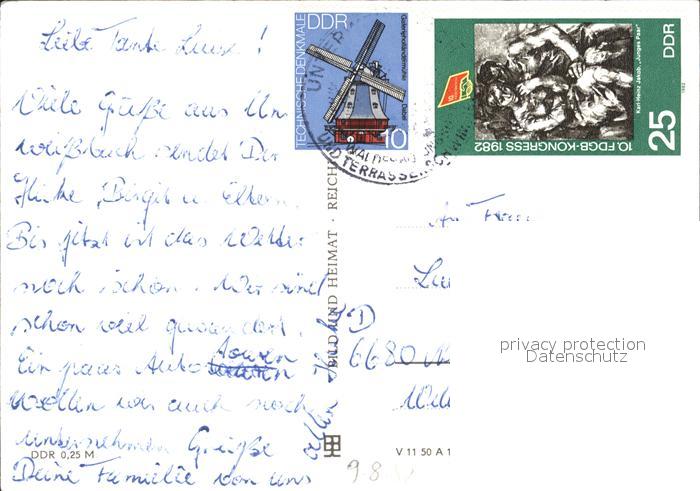 Liebe Tante Luise!
Viele Grüße aus Un
weißbach sendet Dir
Heike, Birgit u. Eltern.
Bis jetzt ist das Wetter
noch schön. Wir sind
schon viel gewandert.
Ein paar Auto touren
wollen wir auch noch
unternehmen Grüße
Deine Familie von uns
DDR 0,25 M
TECHNISCHE DENKMALE
DDR
Galerieholländermühle
Dabel
10
UNTER
UND TERRASSEN
10. FDGB-KONGRESS 1982
Karl-Heinz Jakob, „Junges Paar"
1982
DDR
25
BILD UND HEIMAT · REICHE
An Frau
Lu
6680
V 11 50 A 1
98
privacy protection
Datenschutz